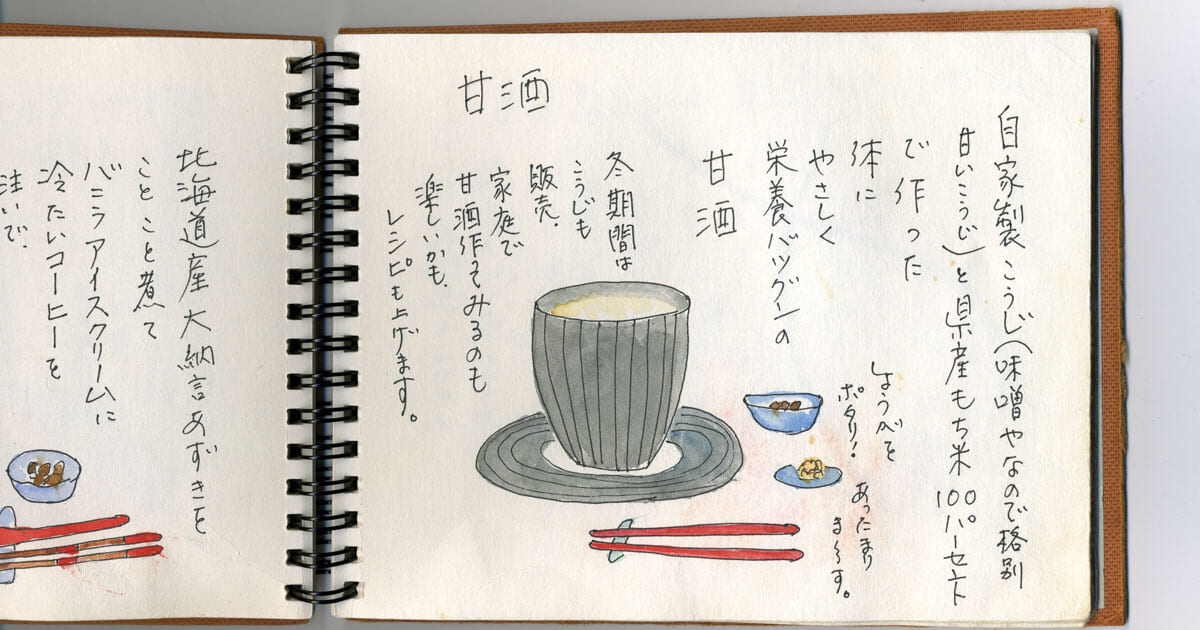 甘酒
自家製こうじ(味噌やなので格別
甘いこうじ)と県産もち米100パーセント
で作った
体に
やさしく
栄養バツグンの
甘酒
冬期間は
こうじも
販売.
家庭で
甘酒作ってみるのも
楽しいかも.
レシピも上げます。
しょうがを
ポタリ!
あったまり
ま〜す。
北海道産大納言あずきを
ことこと煮て
バニラアイスクリームに
冷たいコーヒーを
注いで.